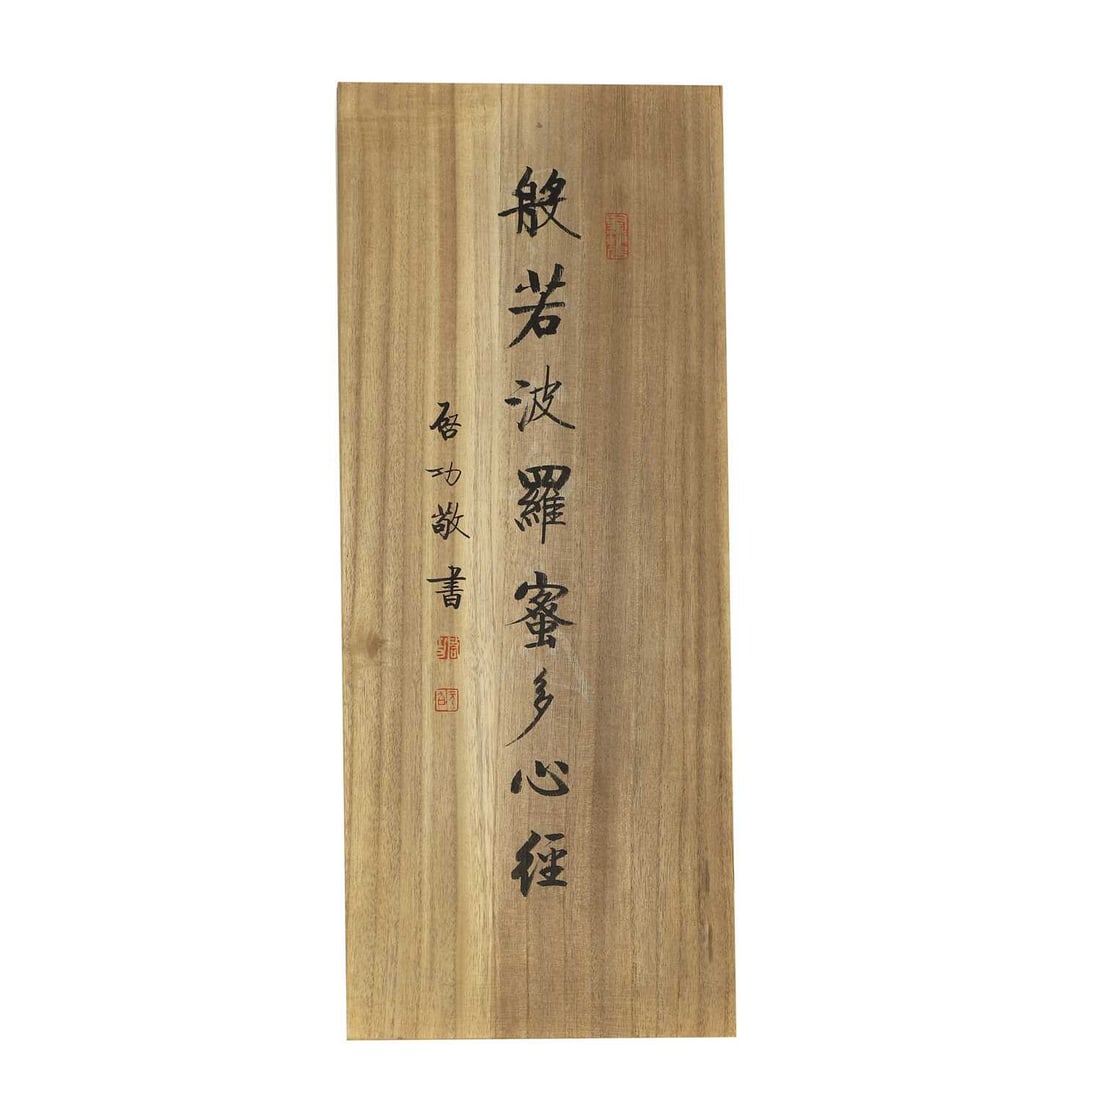 般若波羅蜜多心径
启功敬書